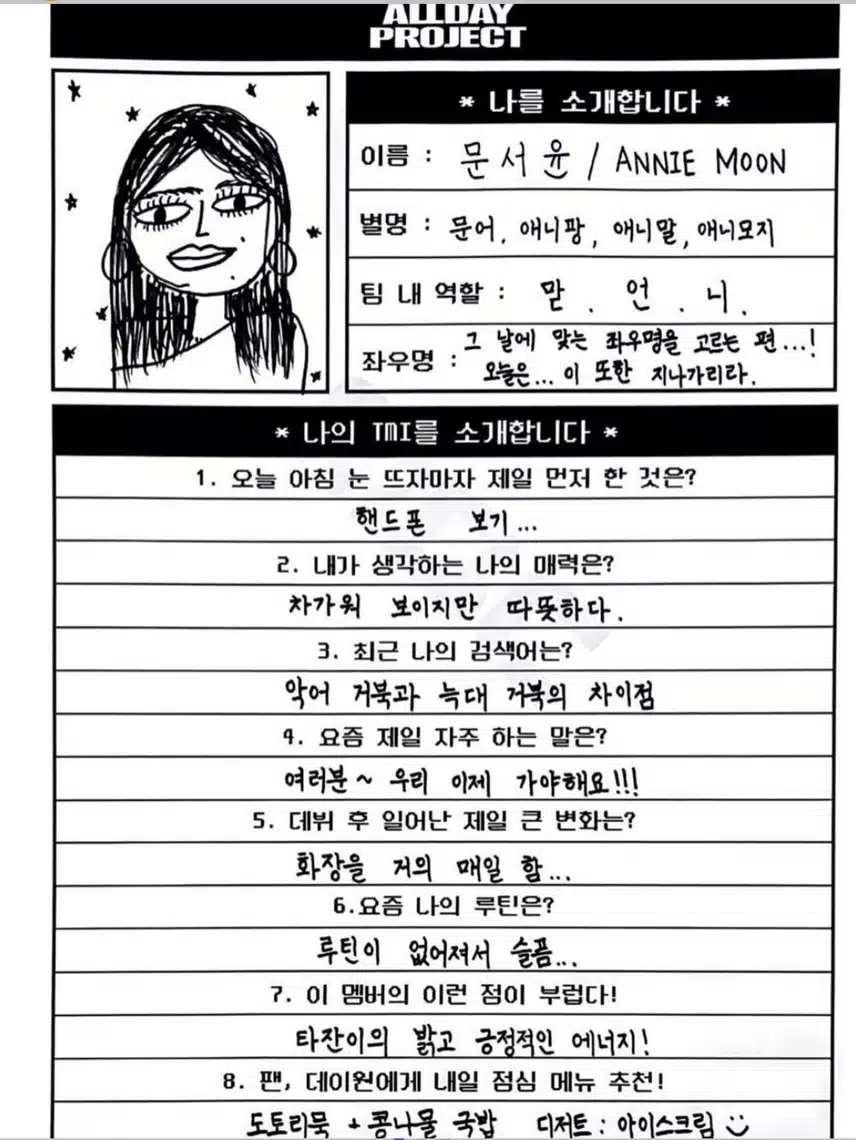 ALLDAY
PROJECT
* 나를 소개합니다 *
이름 : 문서윤 / ANNIE MOON
별명 : 문어, 애니팡, 애니말, 애니모지
팀 내 역할 : 맏 . 언 . 니 .
좌우명 : 그 날에 맞는 좌우명을 고르는 편...!
오늘은... 이 또한 지나가리라.
* 나의 TMI를 소개합니다 *
1. 오늘 아침 눈 뜨자마자 제일 먼저 한 것은?
핸드폰 보기...
2. 내가 생각하는 나의 매력은?
차가워 보이지만 따뜻하다.
3. 최근 나의 검색어는?
악어 거북과 늑대 거북의 차이점
4. 요즘 제일 자주 하는 말은?
여러분~ 우리 이제 가야해요!!!
5. 데뷔 후 일어난 제일 큰 변화는?
화장을 거의 매일 함...
6.요즘 나의 루틴은?
루틴이 없어져서 슬픔...
7. 이 멤버의 이런 점이 부럽다!
타잔이의 밝고 긍정적인 에너지!
8. 팬, 데이원에게 내일 점심 메뉴 추천!
도토리묵 + 콩나물 국밥 디저트 : 아이스크림